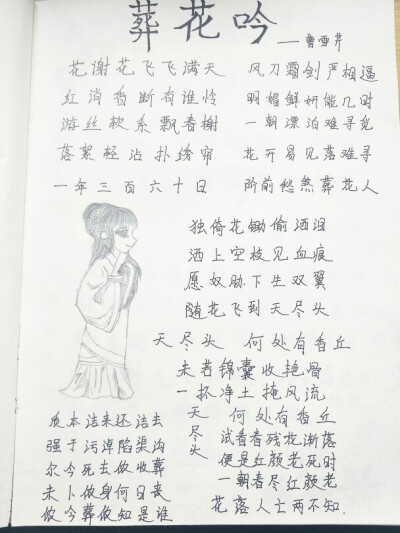 葬花吟
——曹雪芹
花谢花飞飞满天
红消香断有谁怜
游丝软系飘春榭
落絮轻沾扑绣帘
一年三百六十日
风刀霜剑严相逼
明媚鲜妍能几时
一朝漂泊难寻觅
花开易见落难寻
阶前愁煞葬花人
独倚花锄偷洒泪
洒上空枝见血痕
愿奴胁下生双翼
随花飞到天尽头
天尽头 何处有香丘
未若锦囊收艳骨
一抔净土掩风流
质本洁来还洁去
强于污淖陷渠沟
尔今死去侬收葬
未卜侬身何日丧
侬今葬侬知是谁
天尽头 何处有香丘
试看春残花渐落
便是红颜老死时
一朝春尽红颜老
花落人亡两不知.